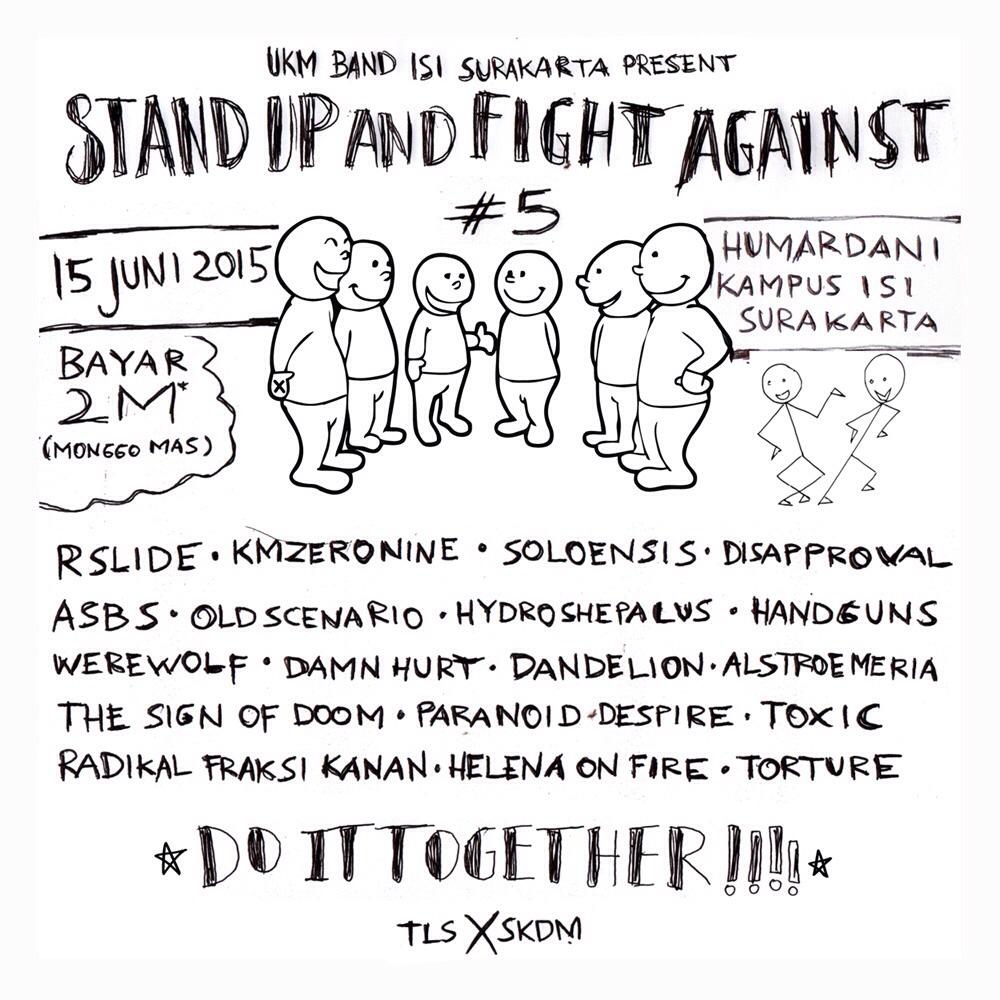 UKM BAND ISI SURAKARTA PRESENT
STAND UP AND FIGHT AGAINST
#5
15 JUNI 2015
HUMARDANI
KAMPUS ISI
SURAKARTA
BAYAR
2M*
(MONGGO MAS)
X
RSLIDE • KMZERONINE • SOLOENSIS • DISAPPROVAL
ASBS • OLDSCENARIO • HYDROSHEPALUS • HANDGUNS
WEREWOLF • DAMN HURT • DANDELION • ALSTROEMERIA
THE SIGN OF DOOM • PARANOID • DESPIRE • TOXIC
RADIKAL FRAKSI KANAN • HELENA ON FIRE • TORTURE
☆ DO IT TOGETHER !!!! ☆
TLS X SKDM